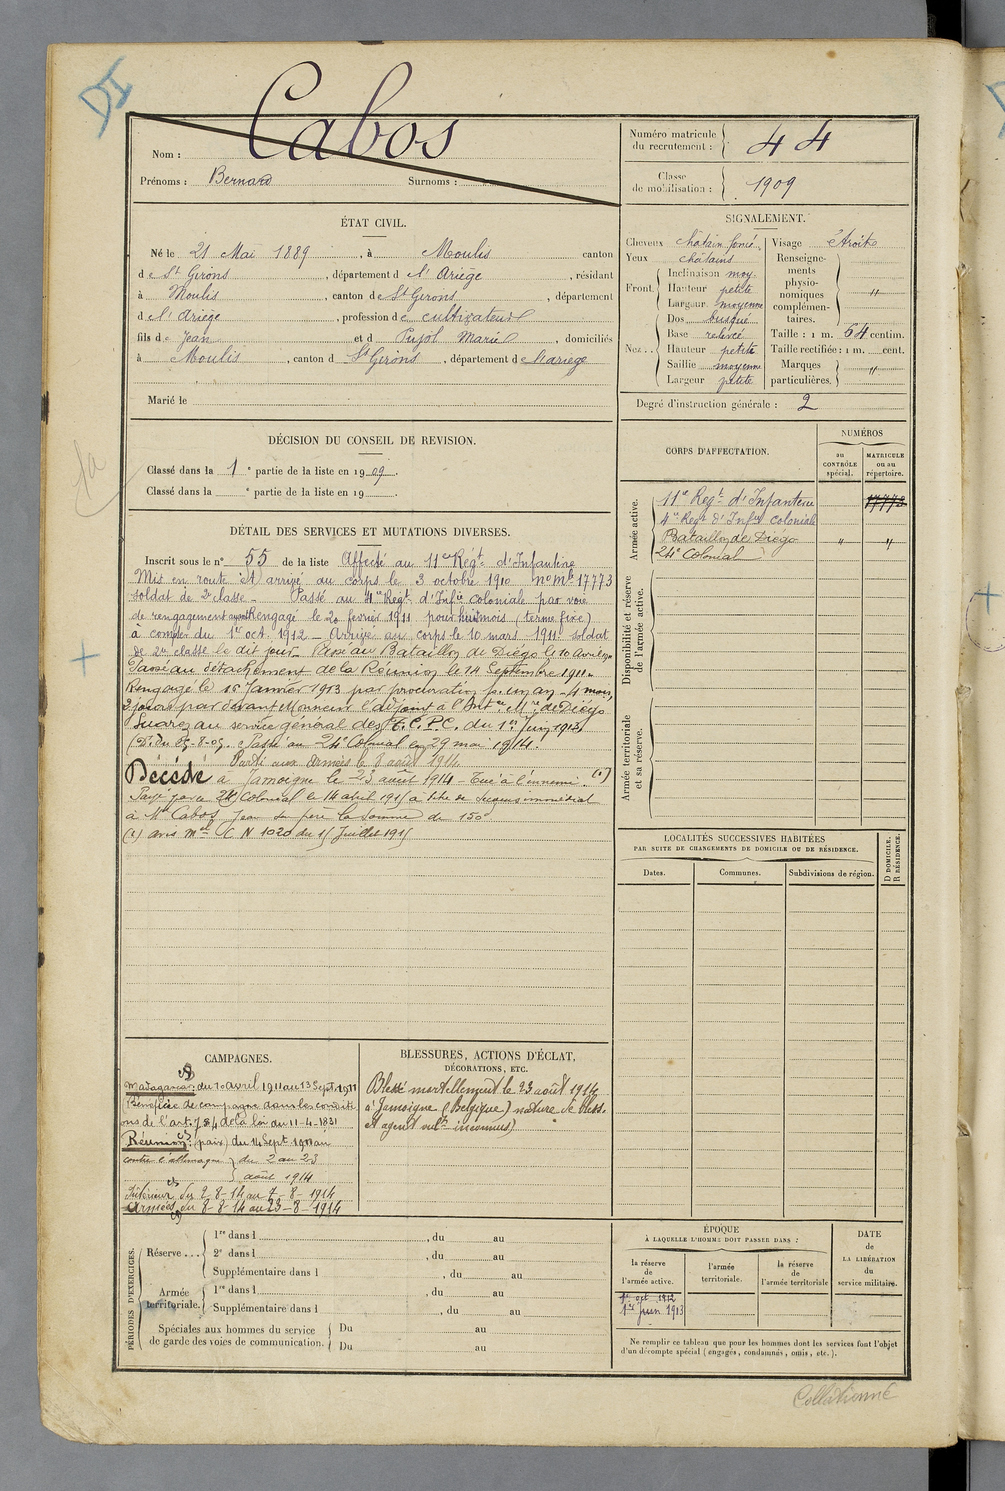 DI
Cabos
Nom :
Prénoms : Bernard Surnoms :
Numéro matricule du recrutement : 44
Classe de mobilisation : 1909
ÉTAT CIVIL.
Né le 21 Mai 1889, à Moulis canton
de St Girons, département de l'Ariège, résidant
à Moulis, canton de St Girons, département
de l'Ariège, profession de cultivateur
fils de Jean et de Pujol Marie, domiciliés
à Moulis, canton de St Girons, département de l'Ariège
Marié le
SIGNALEMENT.
Cheveux châtain foncé
Yeux châtains
Front. Inclinaison moy.
Hauteur petite
Largeur moyenne
Nez.. Dos busqué
Base relevée
Hauteur petite
Saillie moyenne
Largeur petite
Visage étroite
Renseignements physionomiques complémentaires. "
Taille : 1 m. 64 centim.
Taille rectifiée : 1 m. cent.
Marques particulières. "
Degré d'instruction générale : 2
DÉCISION DU CONSEIL DE REVISION.
Classé dans la 1e partie de la liste en 1909.
Classé dans la e partie de la liste en 19
DÉTAIL DES SERVICES ET MUTATIONS DIVERSES.
Inscrit sous le n° 55 de la liste Affecté au 11e Régt d'Infanterie
Mis en route et arrivé au corps le 3 octobre 1910 no mle 17773
soldat de 2e classe - Passé au 4e Regt d'Infie coloniale par voie
de rengagement Rengagé le 20 fevrier 1911 pour huit mois (terme fixe)
à compter du 1er oct. 1912 - Arrivé au corps le 10 mars 1911 soldat
de 2e classe le dit jour. Passé au Bataillon de Diégo le 10 Avril 1911
Passé au détachement de la Réunion le 14 Septembre 1911.
Rengagé le 16 Janvier 1913 par procuration p. un an - 4 mois,
3 jours par devant Monsieur l'adjoint à l'Int re Mre de Diégo
Suarez au service général des T.C.P.C. du 1er Juin 1913
Passé au 24e Colonial le 29 mai 1914.
Parti aux armées le 8 août 1914
Décédé à Jamoigne le 23 août 1914 - Tué à l'ennemi (1)
Payé par le 24e Colonial le 14 avril 1915 à titre de secours immédiat
à Mr Cabos Jean son père la somme de 150f
(1) avis mel C N 1020 du 15 Juillet 1915
CORPS D'AFFECTATION.
NUMÉROS
au CONTRÔLE spécial.
MATRICULE ou au répertoire.
Armée active.
11e Regt d'Infanterie 17773
4e Regt d'Infie coloniale
Bataillon de Diégo " "
24e Colonial
Disponibilité et réserve de l'armée active.
Armée territoriale et sa réserve.
LOCALITÉS SUCCESSIVES HABITÉES
PAR SUITE DE CHANGEMENTS DE DOMICILE OU DE RÉSIDENCE.
Dates. Communes. Subdivisions de région.
D DOMICILE. R RÉSIDENCE.
CAMPAGNES.
Madagascar: du 10 avril 1911 au 13 Sept. 1911
(Bénéficie de campagne dans les conditi-
ons de l'art. 7 & 4 de la loi du 11-4-1831
Réunion (paix) du 14 Sept 1911 au
contre l'allemagne du 2 au 23
août 1914
Intérieur du 2-8-14 au 7-8-1914
Armées du 8-8-14 au 23-8-1914
BLESSURES, ACTIONS D'ÉCLAT,
DÉCORATIONS, ETC.
Blessé mortellement le 23 août 1914
à Jamoigne (Belgique) nature de bless.
et agent vult inconnus)
PÉRIODES D'EXERCICES.
Réserve ... 1re dans l , du au
2e dans l , du au
Supplémentaire dans l , du au
Armée territoriale. 1re dans l , du au
Supplémentaire dans l , du au
Spéciales aux hommes du service de garde des voies de communication. Du au
Du au
ÉPOQUE
À LAQUELLE L'HOMME DOIT PASSER DANS :
la réserve de l'armée active.
l'armée territoriale.
la réserve de l'armée territoriale
DATE de LA LIBÉRATION du service militaire.
1er oct 1912
1er juin 1913
Ne remplir ce tableau que pour les hommes dont les services font l'objet
d'un décompte spécial (engagés, condamnés, omis, etc.).
Collationné